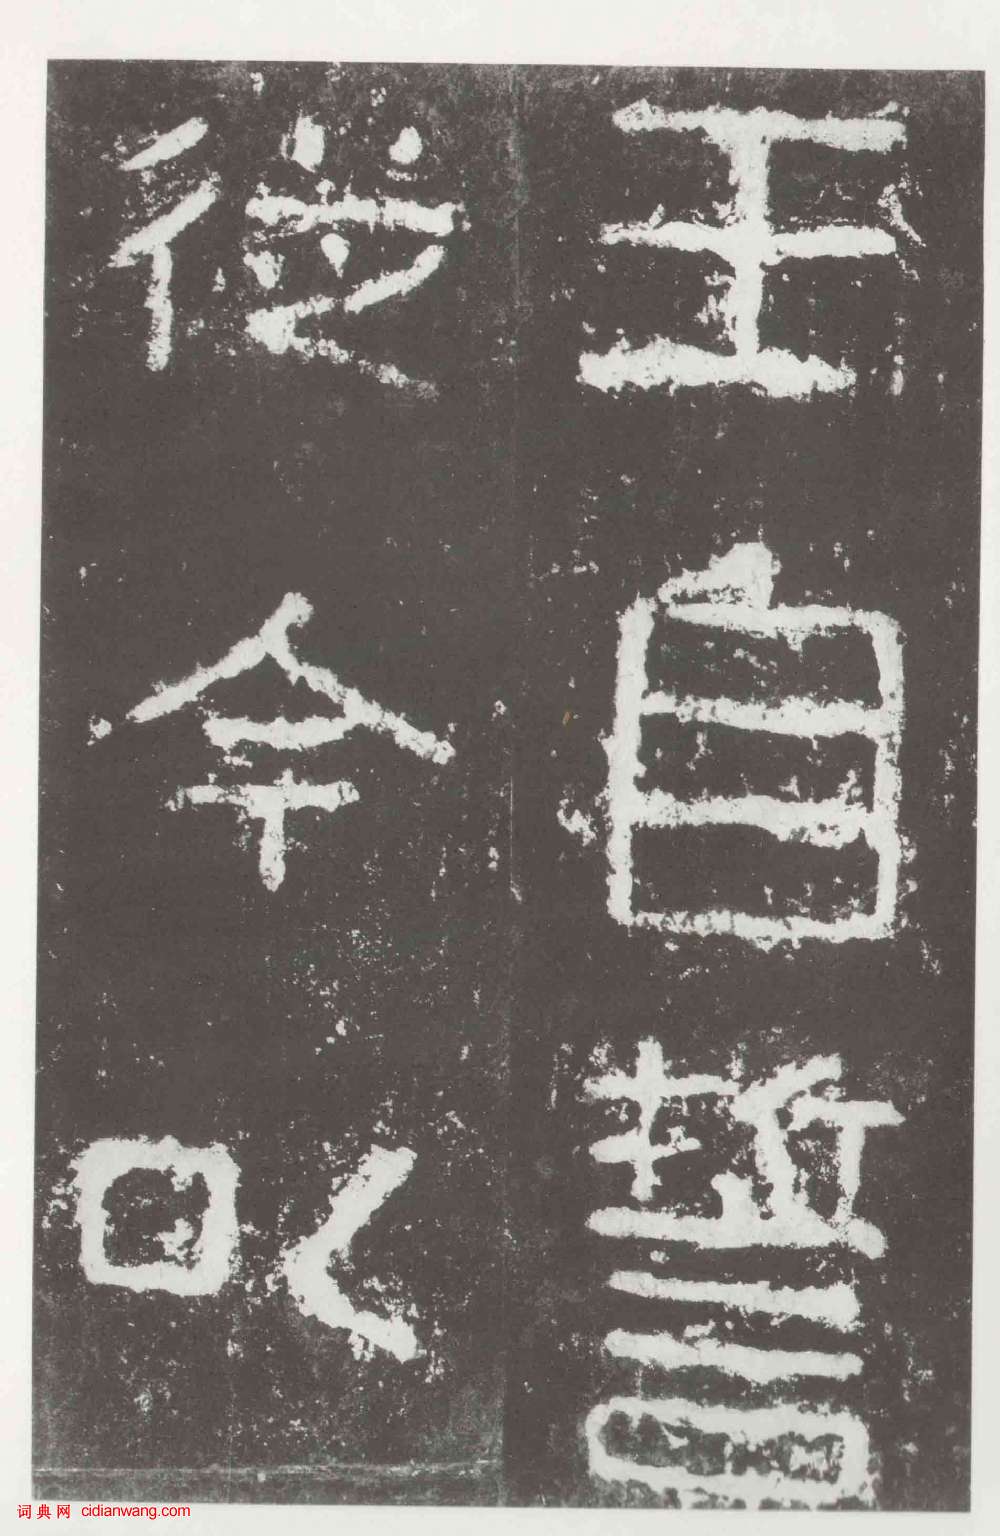 王自誓
從今以
词典网 cidianwang.com